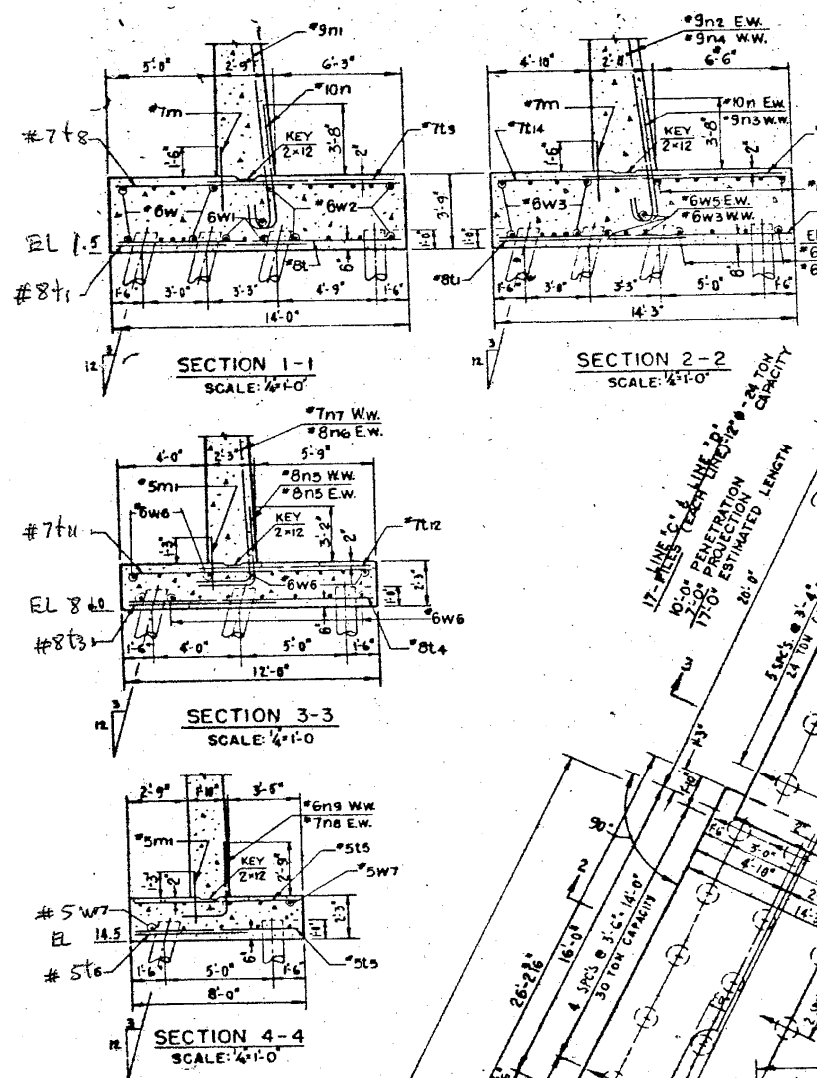 #9n1
5'-0" 2'-9" 6'-3"
#10n
#7m
KEY
2×12
3'-8"
#7t3
#7t8
1'-6"
2"
#6w 6w1 #6w2
3'-9"
1'-0"
EL 1.5
#8t
6"
#8t1
1'-6" 3'-0" 3'-3" 4'-9" 1'-6"
14'-0"
3
12
SECTION 1-1
SCALE: 1/4"=1'-0"
#9n2 E.W.
#9n4 W.W.
4'-10" 2'-11" 6'-6"
#7m
#10n E.W.
#9n3 W.W.
#7t14
KEY
2×12
3'-8"
1'-6"
2"
#6w3
#6w5 E.W.
#6w3 W.W.
1'-0"
#8t1
6"
1'-6" 3'-3" 5'-0" 1'-6"
14'-3"
3
12
SECTION 2-2
SCALE: 1/4"=1'-0"
#7n7 W.W.
#8n6 E.W.
4'-0" 2'-3" 5'-9"
#5m1
#8n3 W.W.
#8n5 E.W.
#6w6
KEY
2×12
3'-2"
#7t11
#7t12
1'-3"
2"
#6w6
2'-3"
1'-0"
EL 8.0
#6w6
#8t3
6"
#8t4
1'-6" 4'-0" 5'-0" 1'-6"
12'-0"
3
12
SECTION 3-3
SCALE: 1/4"=1'-0
2'-9" 1'-10" 3'-5"
#6n9 W.W.
#7n8 E.W.
#5m1
#5t5
KEY
2×12
2'-9"
#5w7
1'-3"
2"
#5w7
2'-3"
1'-0"
EL 14.5
6"
#5t6
#5t5
1'-6" 5'-0" 1'-6"
8'-0"
3
12
SECTION 4-4
SCALE: 1/4"=1'-0"
LINE "C" & LINE "D"
17-PILES (EACH LINE) 12"φ - 24 TON
CAPACITY
10'-0" PENETRATION
7'-0" PROJECTION
17'-0" ESTIMATED LENGTH
20'-0"
5 SPC'S. @ 3'-4"
24 TON
1'-3"
1'-10"
90°
1'-6"
3'-0"
4'-10"
2
16'-0"
4 SPC'S @ 3'-6" = 14'-0"
30 TON CAPACITY